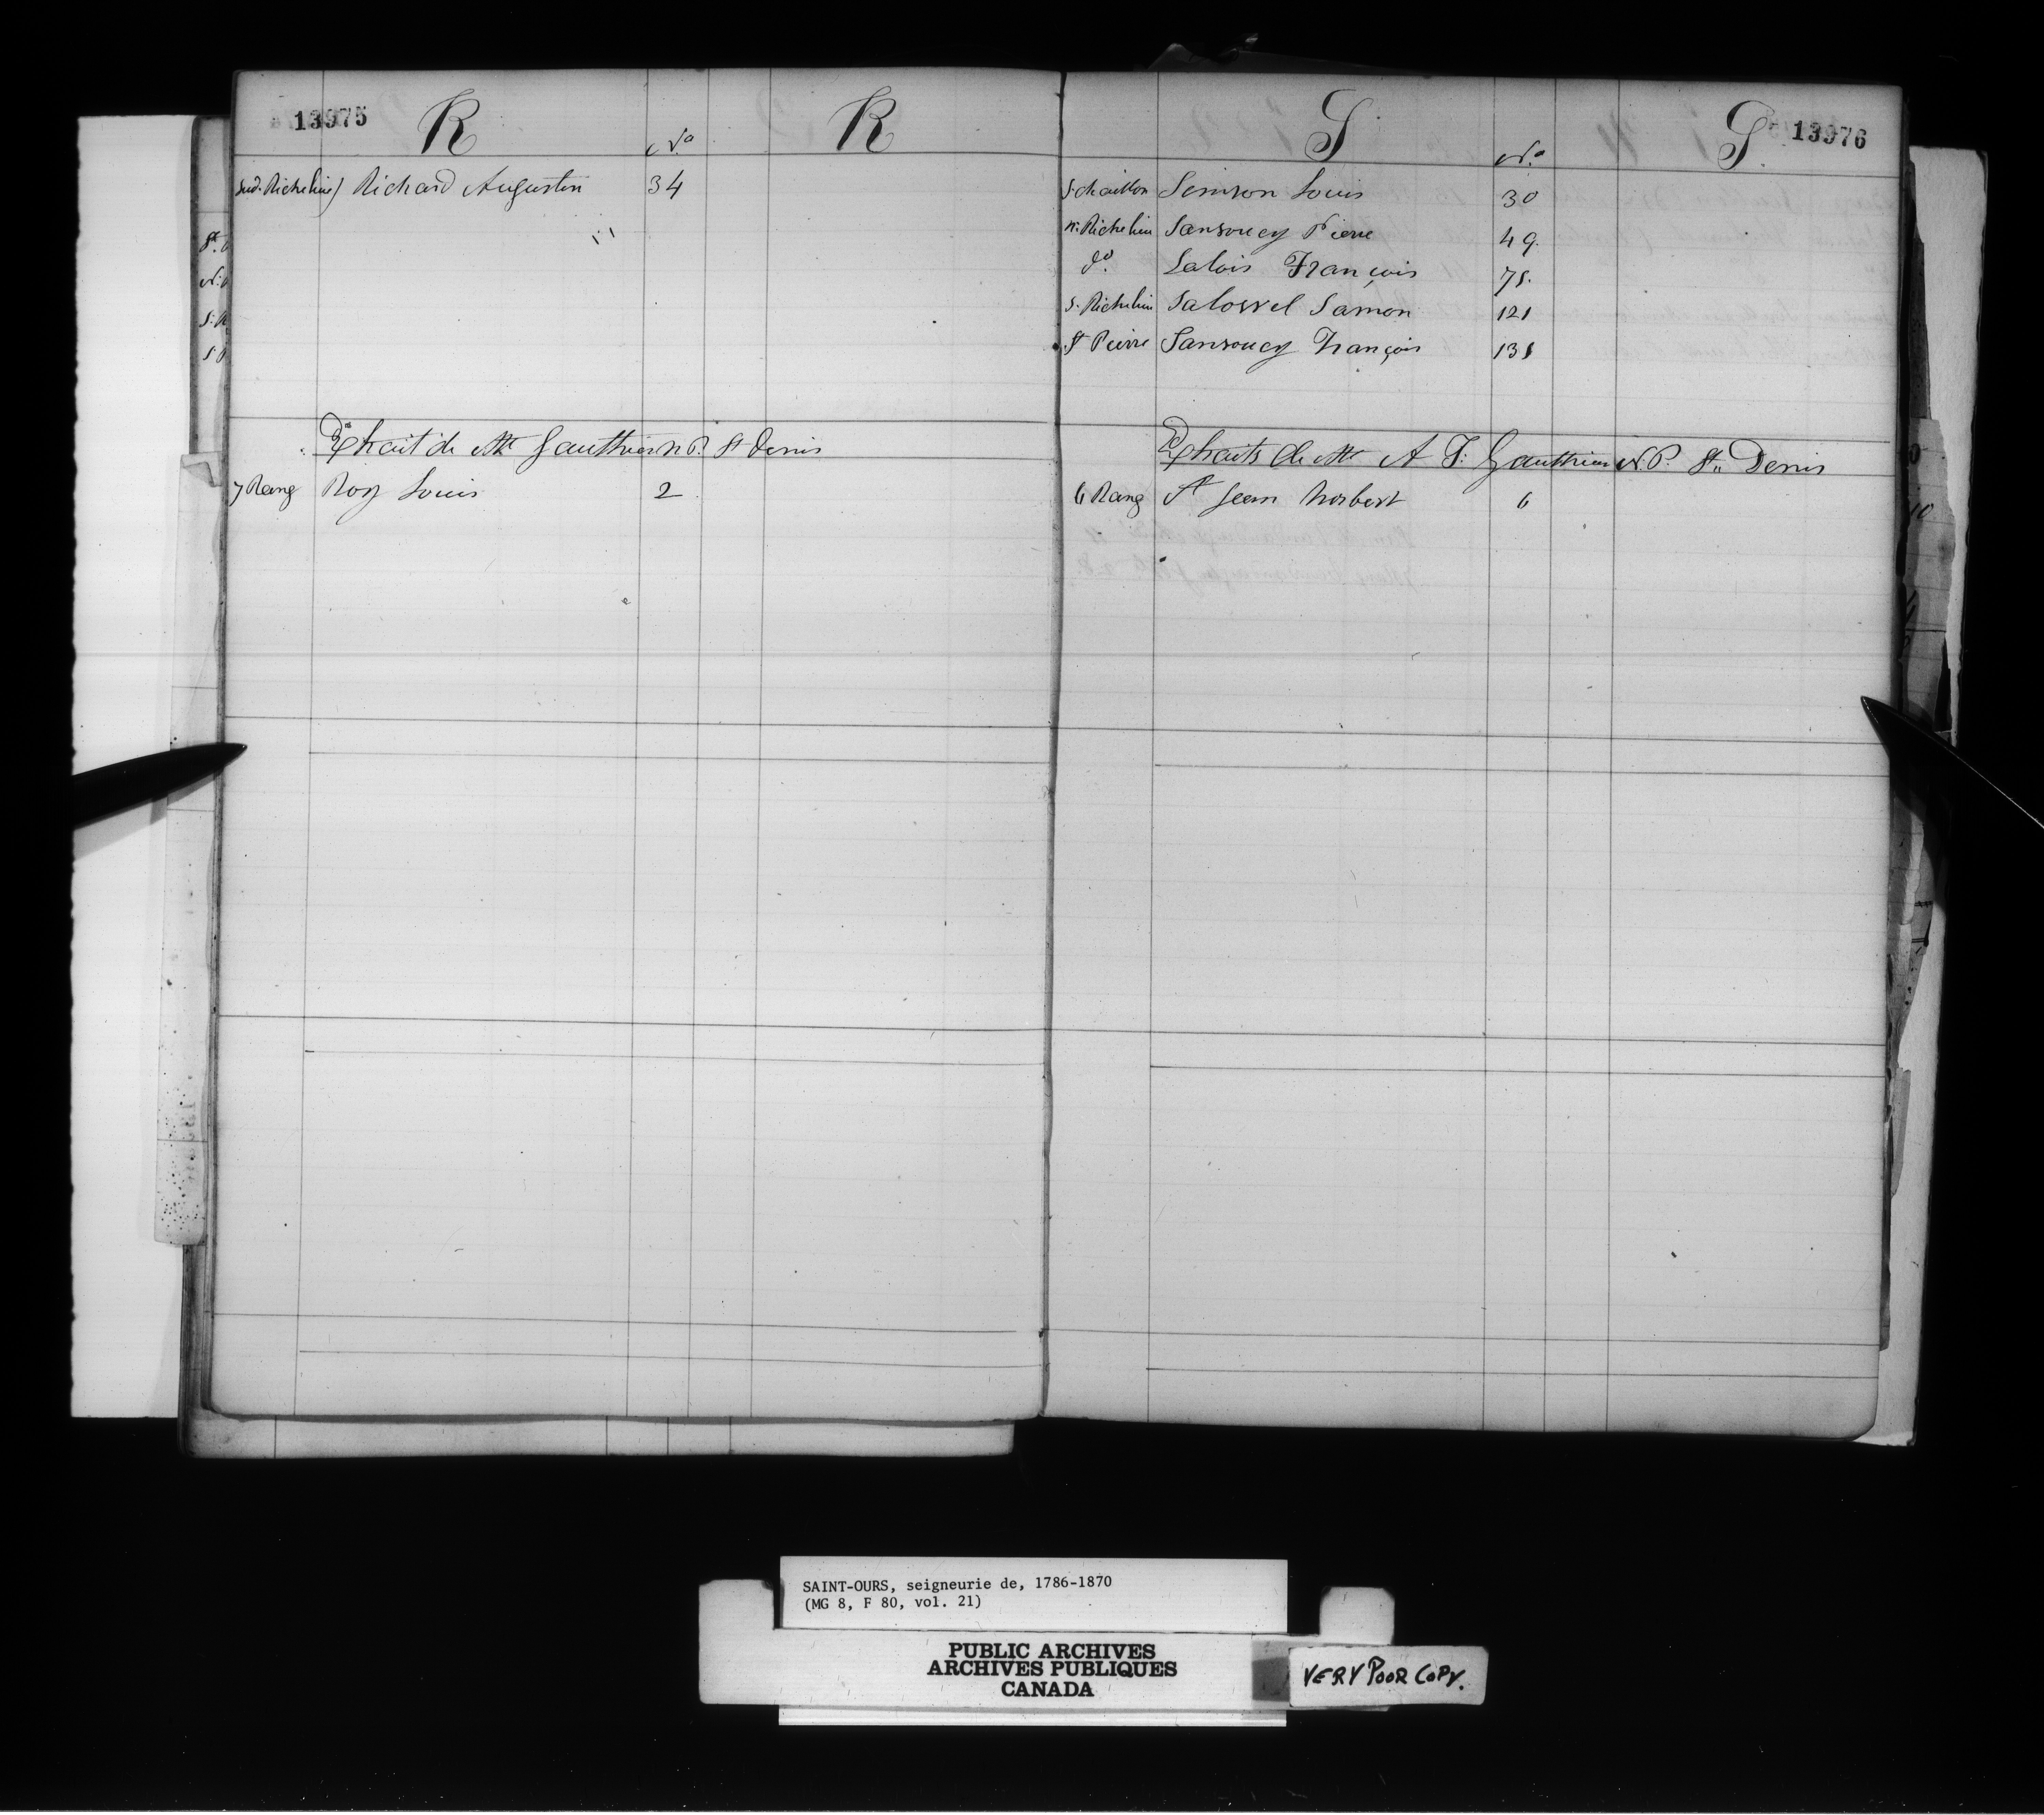 13975 R No R
Sud. Richelieu) Richard Augustin 34
Extrait de Mtre Gauthier N.P. St Denis
7 Rang Roy Louis 2
S No S 13976
Louis 30
n. Richelieu Sansoucy Pierre 49.
do. Salois François 75.
S. Richelieu Samon 121
St Pierre Sansoucy François 131
Extraits de Mtre A Gauthier N.P. St. Denis
6 Rang St Jean Norbert 6
SAINT-OURS, seigneurie de, 1786-1870
(MG 8, F 80, vol. 21)
PUBLIC ARCHIVES
ARCHIVES PUBLIQUES
CANADA
VERY POOR COPY.